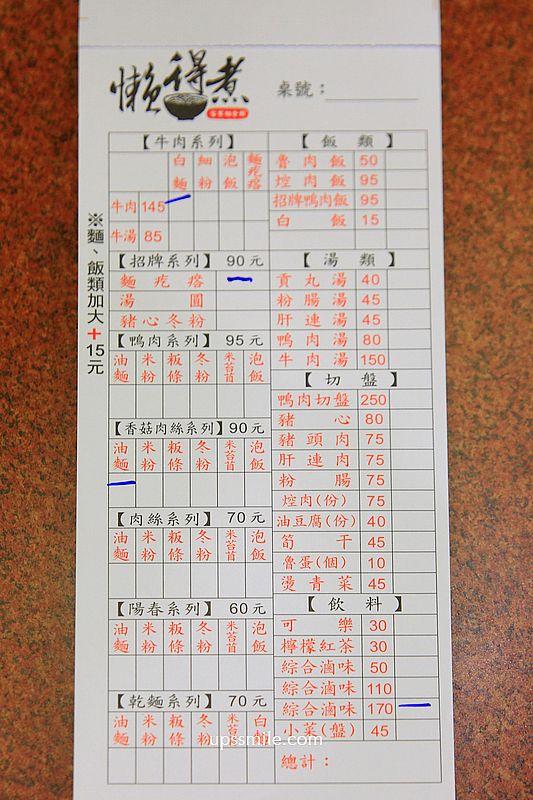 懶得煮
桌號：
※麵、飯類加大+15元
【牛肉系列】
白麵 細粉 泡飯 麵疙瘩
牛肉 145
牛湯 85
【招牌系列】 90元
麵疙瘩
湯圓
豬心冬粉
【鴨肉系列】 95元
油麵 米粉 粄條 冬粉 米苔苜 泡飯
【香菇肉絲系列】 90元
油麵 米粉 粄條 冬粉 米苔苜 泡飯
【肉絲系列】 70元
油麵 米粉 粄條 冬粉 米苔苜 泡飯
【陽春系列】 60元
油麵 米粉 粄條 冬粉 米苔苜 泡飯
【乾麵系列】 70元
油麵 米粉 粄條 冬粉 米苔 白
【飯類】
魯肉飯 50
焢肉飯 95
招牌鴨肉飯 95
白飯 15
【湯類】
貢丸湯 40
粉腸湯 45
肝連湯 45
鴨肉湯 80
牛肉湯 150
【切盤】
鴨肉切盤 250
豬心 80
豬頭肉 75
肝連肉 75
粉腸 75
焢肉(份) 75
油豆腐(份) 40
筍干 45
魯蛋(個) 10
燙青菜 45
【飲料】
可樂 30
檸檬紅茶 30
綜合滷味 50
綜合滷味 110
綜合滷味 170
小菜(盤) 45
總計：
upssmile.com